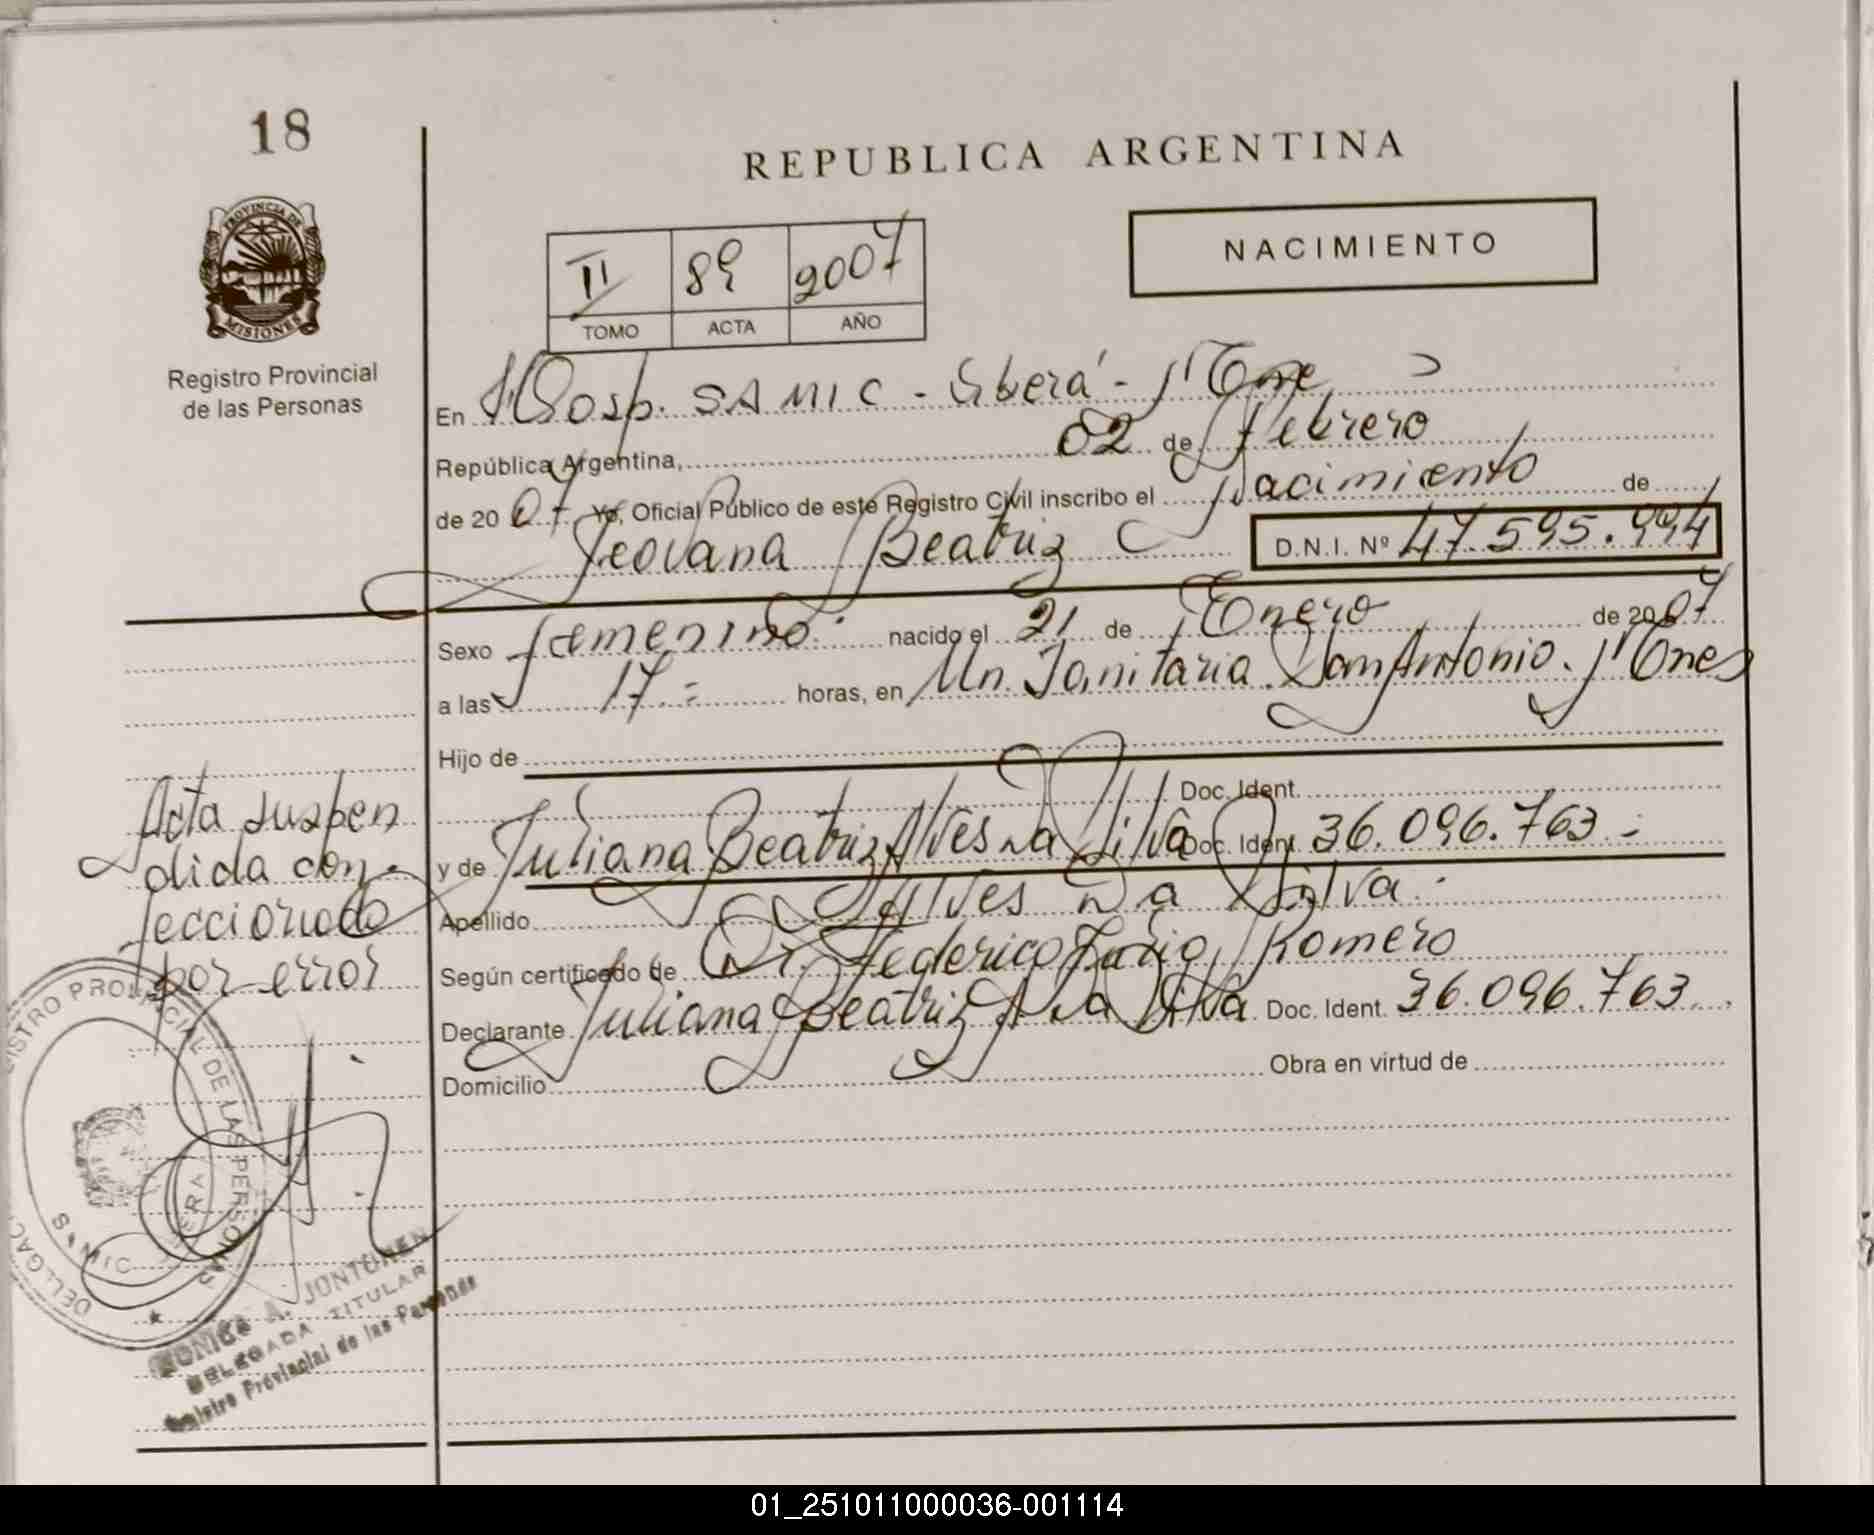 18
REPUBLICA ARGENTINA
PROVINCIA DE
MISIONES
Registro Provincial
de las Personas
NACIMIENTO
II 89 2007
TOMO ACTA AÑO
En Hosp. SAMIC - Eldorá - Mnes
República Argentina, 02 de Febrero
de 20 07 Yo, Oficial Público de este Registro Civil inscribo el Nacimiento de
Jeovana Beatriz D.N.I. Nº 47.595.994
Sexo femenino nacido el 21 de Enero de 20 07
a las 17 = horas, en Un. Sanitaria San Antonio. Mnes
Hijo de
Doc. Ident.
y de Juliana Beatriz Alves Da Silva Doc. Ident. 36.096.763
Apellido Alves Da Silva
Según certificado de Dr. Federico Romero
Declarante Juliana Beatriz A Da Silva Doc. Ident. 36.096.763
Domicilio Obra en virtud de
Acta suspen
dida con
feccionado
por error
REGISTRO PROVINCIAL DE LAS PERSONAS
SAMIC
A. JONTUNEN
DELEGADA TITULAR
Registro Provincial de las Personas
01_251011000036-001114